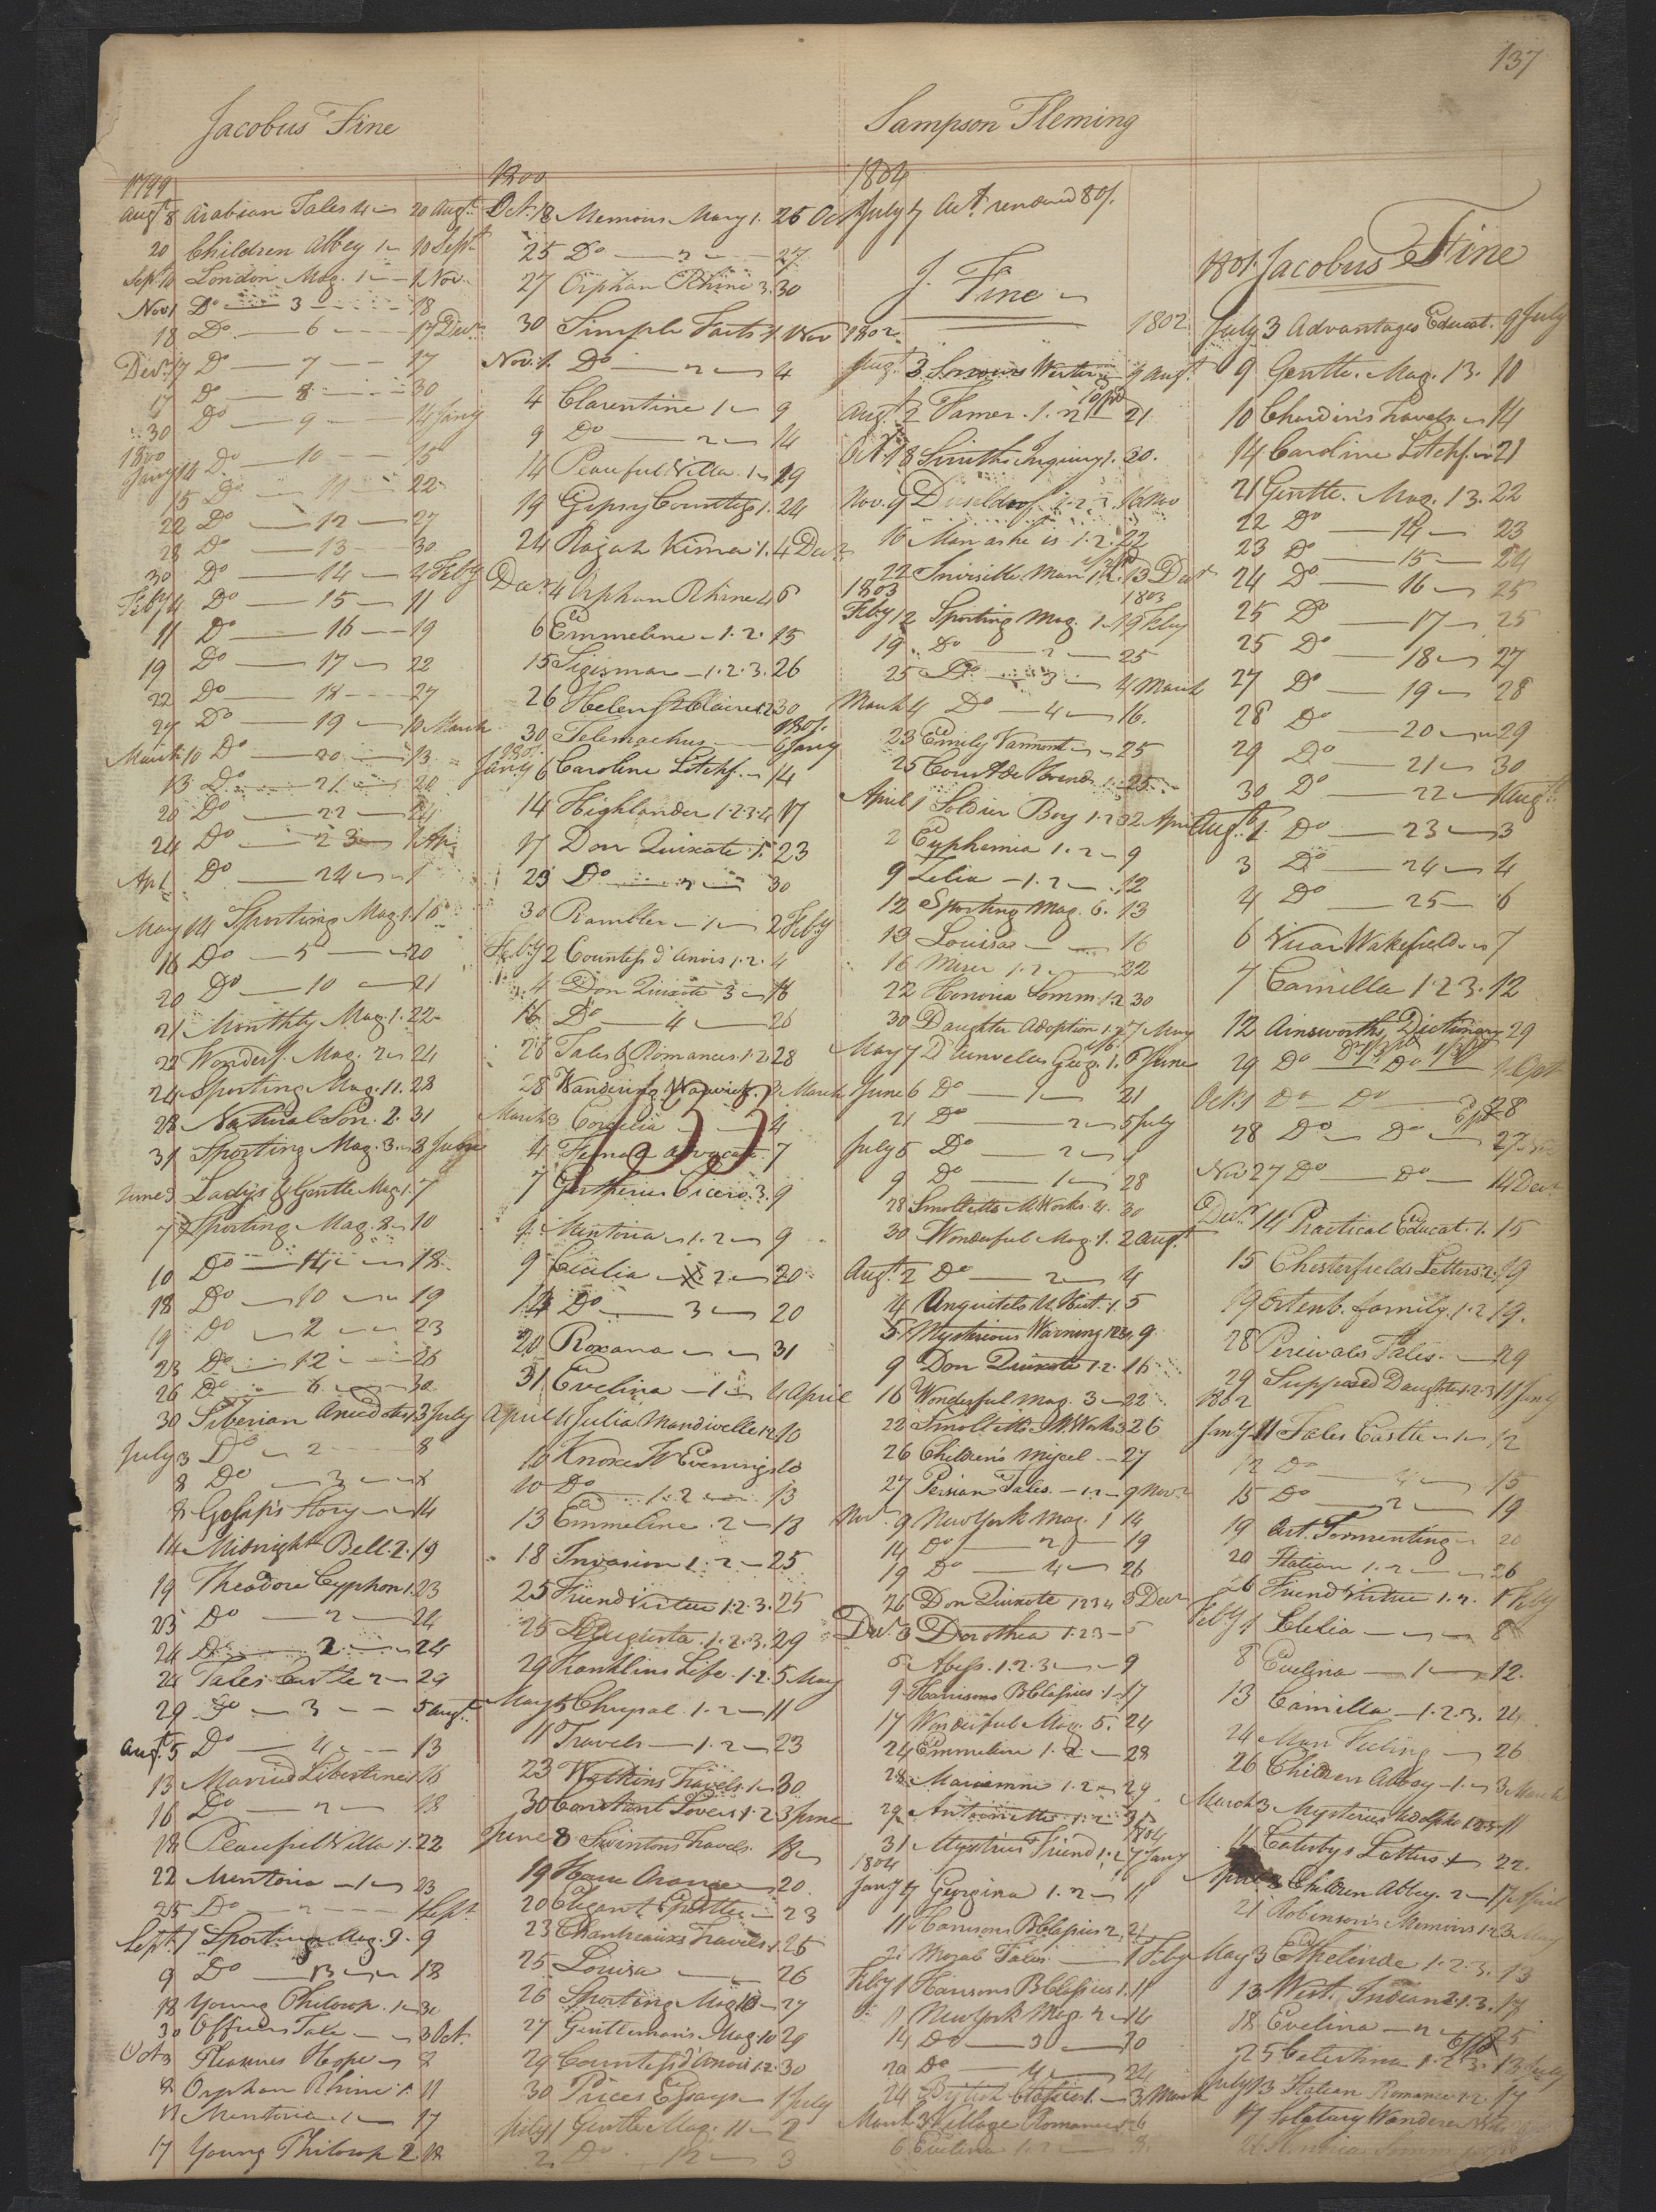 137
Jacobus Fine
1799
Augt 8 Arabian Tales 4 20 Augt
20 Children Abbey 1 10 Sept
Sept 10 London Mag. 1 1 Nov
Nov 1 Do 3 18
18 Do 6 17 Decr
Decr 17 Do 7 17
17 Do 8 30
30 Do 9 14 Jany
1800
Jany 14 Do 10 15
15 Do 11 22
22 Do 12 27
28 Do 13 30
30 Do 14 4 Feby
Feby 4 Do 15 11
11 Do 16 19
19 Do 17 22
22 Do 18 27
27 Do 19 10 March
March 10 Do 20 13
13 Do 21 20
20 Do 22 24
24 Do 23 1 Ap
Ap 1 Do 24 1
May 14 Sporting Mag. 1. 16
16 Do 5 20
20 Do 10 21
21 Monthly Mag. 1. 22
22 Wonderf. Mag. 2 24
24 Sporting Mag. 11. 28
28 Natural Son. 2. 31
31 Sporting Mag. 3. 3 June
June 3 Lady's & Gentle Mag 1. 7
7 Sporting Mag. 8 10
10 Do 14 18
18 Do 10 19
19 Do 2 23
23 Do 12 26
26 Do 6 30
30 Siberian Anecdotes 1 3 July
July 3 Do 2 8
8 Do 3 8
8 Gossip's Story 14
14 Midnight Bell. 2. 19
19 Theodore Cyphon 1. 23
23 Do 2 24
24 Do 2 24
24 Tales Castle 2 29
29 Do 3 5 Augt
Augt 5 Do 4 13
13 Married Libertine 1 16
16 Do 2 18
18 Peaceful Villa 1. 22
22 Mentoria 1 23
25 Do 2 1 Sept
Sept 1 Sporting Mag. 9. 9
9 Do 13 18
18 Young Philosop. 1 30
30 Officers Tale 3 Oct
Oct 3 Pleasures Hope 8
8 Orphan Rhine 1. 11
11 Mentoria 1 17
17 Young Philosop 2 18
1800
Oct. 18 Memoirs Mary 1. 25 Oct
25 Do 2 27
27 Orphan Rhine 3. 30
30 Simple Facts 1. Nov
Nov. 1. Do 2 4
4 Clarentine 1 9
9 Do 2 14
14 Peaceful Villa 1 19
19 Gipsy Countess 1. 24
24 Rajah Kisna 1. 4 Decr
Decr 4 Orphan Rhine 4 6
6 Emmeline 1. 2. 15
15 Sigismar 1. 2. 3. 26
26 Helen St Claire 1 2 30
30 Telemachus 1801. 6 Jany
1801.
Jany 6 Caroline Litchf. 14
14 Highlander 1 2 3 4 17
17 Don Quixote 1. 23
23 Do 2 30
30 Rambler 1 2 Feby
Feby 2 Countess d'Anois 1. 2. 4
4 Don Quixote 3 16
16 Do 4 26
26 Tales & Romances. 1. 2. 28
28 Wandering Warwick. 3 March
March 3 Cordelia 4
4 Female Advocate. 7
7 Guthries Cicero. 3. 9
9 Mentoria 1. 2 9
9 Cecilia 2 20
Do 3 20
20 Roxana 31
31 Evelina 1 4 April
April 4 Julia Mandiville 1 2 10
10 Knoxes W Evenings 10
10 Do 1. 2 13
13 Emmeline 2 18
18 Invasion 1. 2 25
25 Friend Virtue 1. 2. 3. 25
25 Augusta 1. 2. 3. 29
29 Franklins Life. 1. 2. 5 May
May 5 Chrysal 1. 2 11
11 Travels 1. 2 23
23 Watkins Travels. 1 30
30 Constant Lovers 1. 2 3 June
June 8 Swintons Travels. 18
20
20 Elegant Epistles 23
23 Travels. 1. 25
25 Louisa 26
26 Sporting Mag 10 27
27 Gentleman's Mag. 10 29
29 Countess d'Anois 1. 2. 30
30 Prices Essays 1 July
July 1 Gentle Mag. 11 2
2. Do 12 3
133
Sampson Fleming
1804
July 7 Act. rendered 80/.
J. Fine
1802 1802
3 Sorrows Werter 9 Augt
Augt 2 21
Oct 18 Smiths Inquiry 1. 30.
Nov. 9 16 Nov
16 Man as he is 1. 2. 22
22 Invisible Man 1. 2. 13 Decr
1803 1803
Feby 12 Sporting Mag. 1 19 Feby
19 Do 2 25
25 Do 3 4 March
March 4 Do 4 16.
23 Emily Varmont 25
25 Count de 1. 25
April 1 Soldier Boy 1. 2 3 2 April
2 Euphemia 1. 2 9
9 Lelia 1. 2 12
12 Sporting Mag. 6. 13
13 Louisa 16
16 Miser 1. 2 22
22 Honoria Somm. 1. 2 30
30 Daughter Adoption 1. 2 7 May
May 7 6 June
June 6 Do 1 21
21 Do 2 5 July
July 5 Do 2
9 Do 1 28
28 Smolletts M Works. 4. 30
30 Wonderful Mag. 1. 2 Augt
Augt 2 Do 2 4
4 Anquitels U. Hist. 1. 5
5 Mysterious Warning 1 2 3 4. 9
9 Don Quixote 1. 2. 16
16 Wonderful Mag. 3 22
22 Smolletts M. Works 3 26
26 Children's Miscel. 27
27 Persian Tales. 1. 2 9 Novr
Novr. 9. New York Mag. 1 14
14 Do 2 19
19 Do 4 26
26 Don Quixote 1 2 3 4 3 Decr
Decr 3 Dorothea 1. 2 3 5
5 Abess. 1. 2. 3 9
9 Harrisons B Classics. 1 17
17 Wonderful Mag. 5. 24
24 Emmeline 1. 2. 28
28 Mariamne 1. 2 29
29 Antoinette 1. 2 31
1804
31 Mysterious Friend 1. 2 7 Jany
1804
Jany 7 Georgina 1. 2 11
11 Harrisons B Classics 2. 21
21 Moral Tales 1 Feby
Feby 1 Harrisons B Classics 1. 11
11 New York Mag. 2 14
14 Do 3 20
20 Do 4 24
24 British Classics 1. 3 March
March 3 Village Romance 6
6 Evelina 1. 2 8.
1801. Jacobus Fine
July 3 Advantages Educat. 9 July
9 Gentle. Mag. 13. 10
10 Chardin's Travels 14
14 Caroline Litchf. 21
21 Gentle. Mag. 13. 22
22 Do 14 23
23 Do 15 24
24 Do 16 25
25 Do 17 25
25 Do 18 27
27 Do 19 28
28 Do 20 29
29 Do 21 30
30 Do 22 1 Augt
Augt 1. Do 23 3
3 Do 24 4
4 Do 25 6
6 Vicar Wakefield 7
7 Camilla 1. 2 3. 12
12 Ainsworths Dictionary 29
29 Do Do 1 Oct
Oct. 1 Do Do 28
28 Do Do 27 Nov
Nov 27 Do Do 14 Decr
Decr 14 Practical Educat. 1. 15
15 Chesterfields Letters. 2. 19
19 Ortenb. family. 1. 2 19.
28 Percivals Tales. 29
29 Supposed Daughter 1. 2. 3 11 Jany
1802
Jany 11 Tales Castle 1 12
12 Do 4 15
15 Do 2 19
19 Art. Tormenting 20
20 Italian 1. 2 26
26 Friend Virtue 1. 2. 1 Feby
Feby 1 Clelia 8
8 Evelina 1 12.
13 Camilla 1. 2. 3. 24
24 Man Feeling 26
26 Children Abbey 1 3 March
March 3 Mysteries Udolpho 1 2 3 11
11 Catesbys Letters 22.
Children Abbey. 2 17 April
21 Robinson's Memoirs 1 2 3 May
May 3 Ethelinde 1. 2. 3. 13
13 West. Indian 2. 1. 3. 17
18 Evelina 2 25
25 Celestina 1. 2. 3. 13 July
July 13 Italian Romance 1. 2. 17
17 Solatary Wanderer